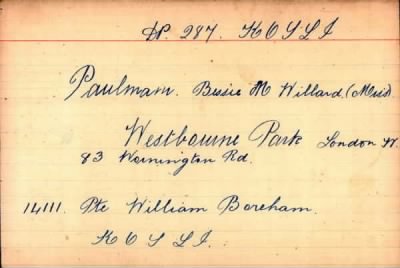 DP. 287. K O Y L I
Paulmam. Bessie M Willard. (Miss)
Westbourne Park London W.
83 Wornington Rd.
14111. Pte William Boreham.
K O Y L I.